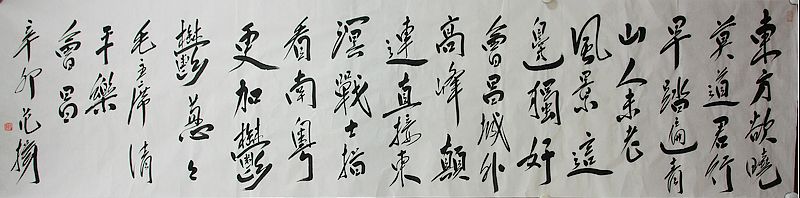 東方欲曉
莫道君行
早踏遍青
山人未老
風景這
邊獨好
會昌城外
高峰顛
連直接東
溟戰士指
看南粵
更加鬱
鬱蔥々
毛主席清
平樂
會昌
辛卯范